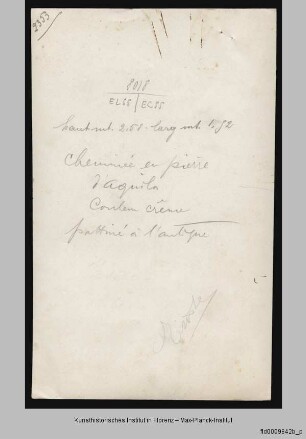 2353
8018
ELSS | ECSS
haut mt. 2.60 - larg mt. 1.92
Cheminée en pierre
d'aquila
Couleur crême
pattiné à l'antique
Kunsthistorisches Institut in Florenz – Max-Planck-Institut
fld0009942b_p